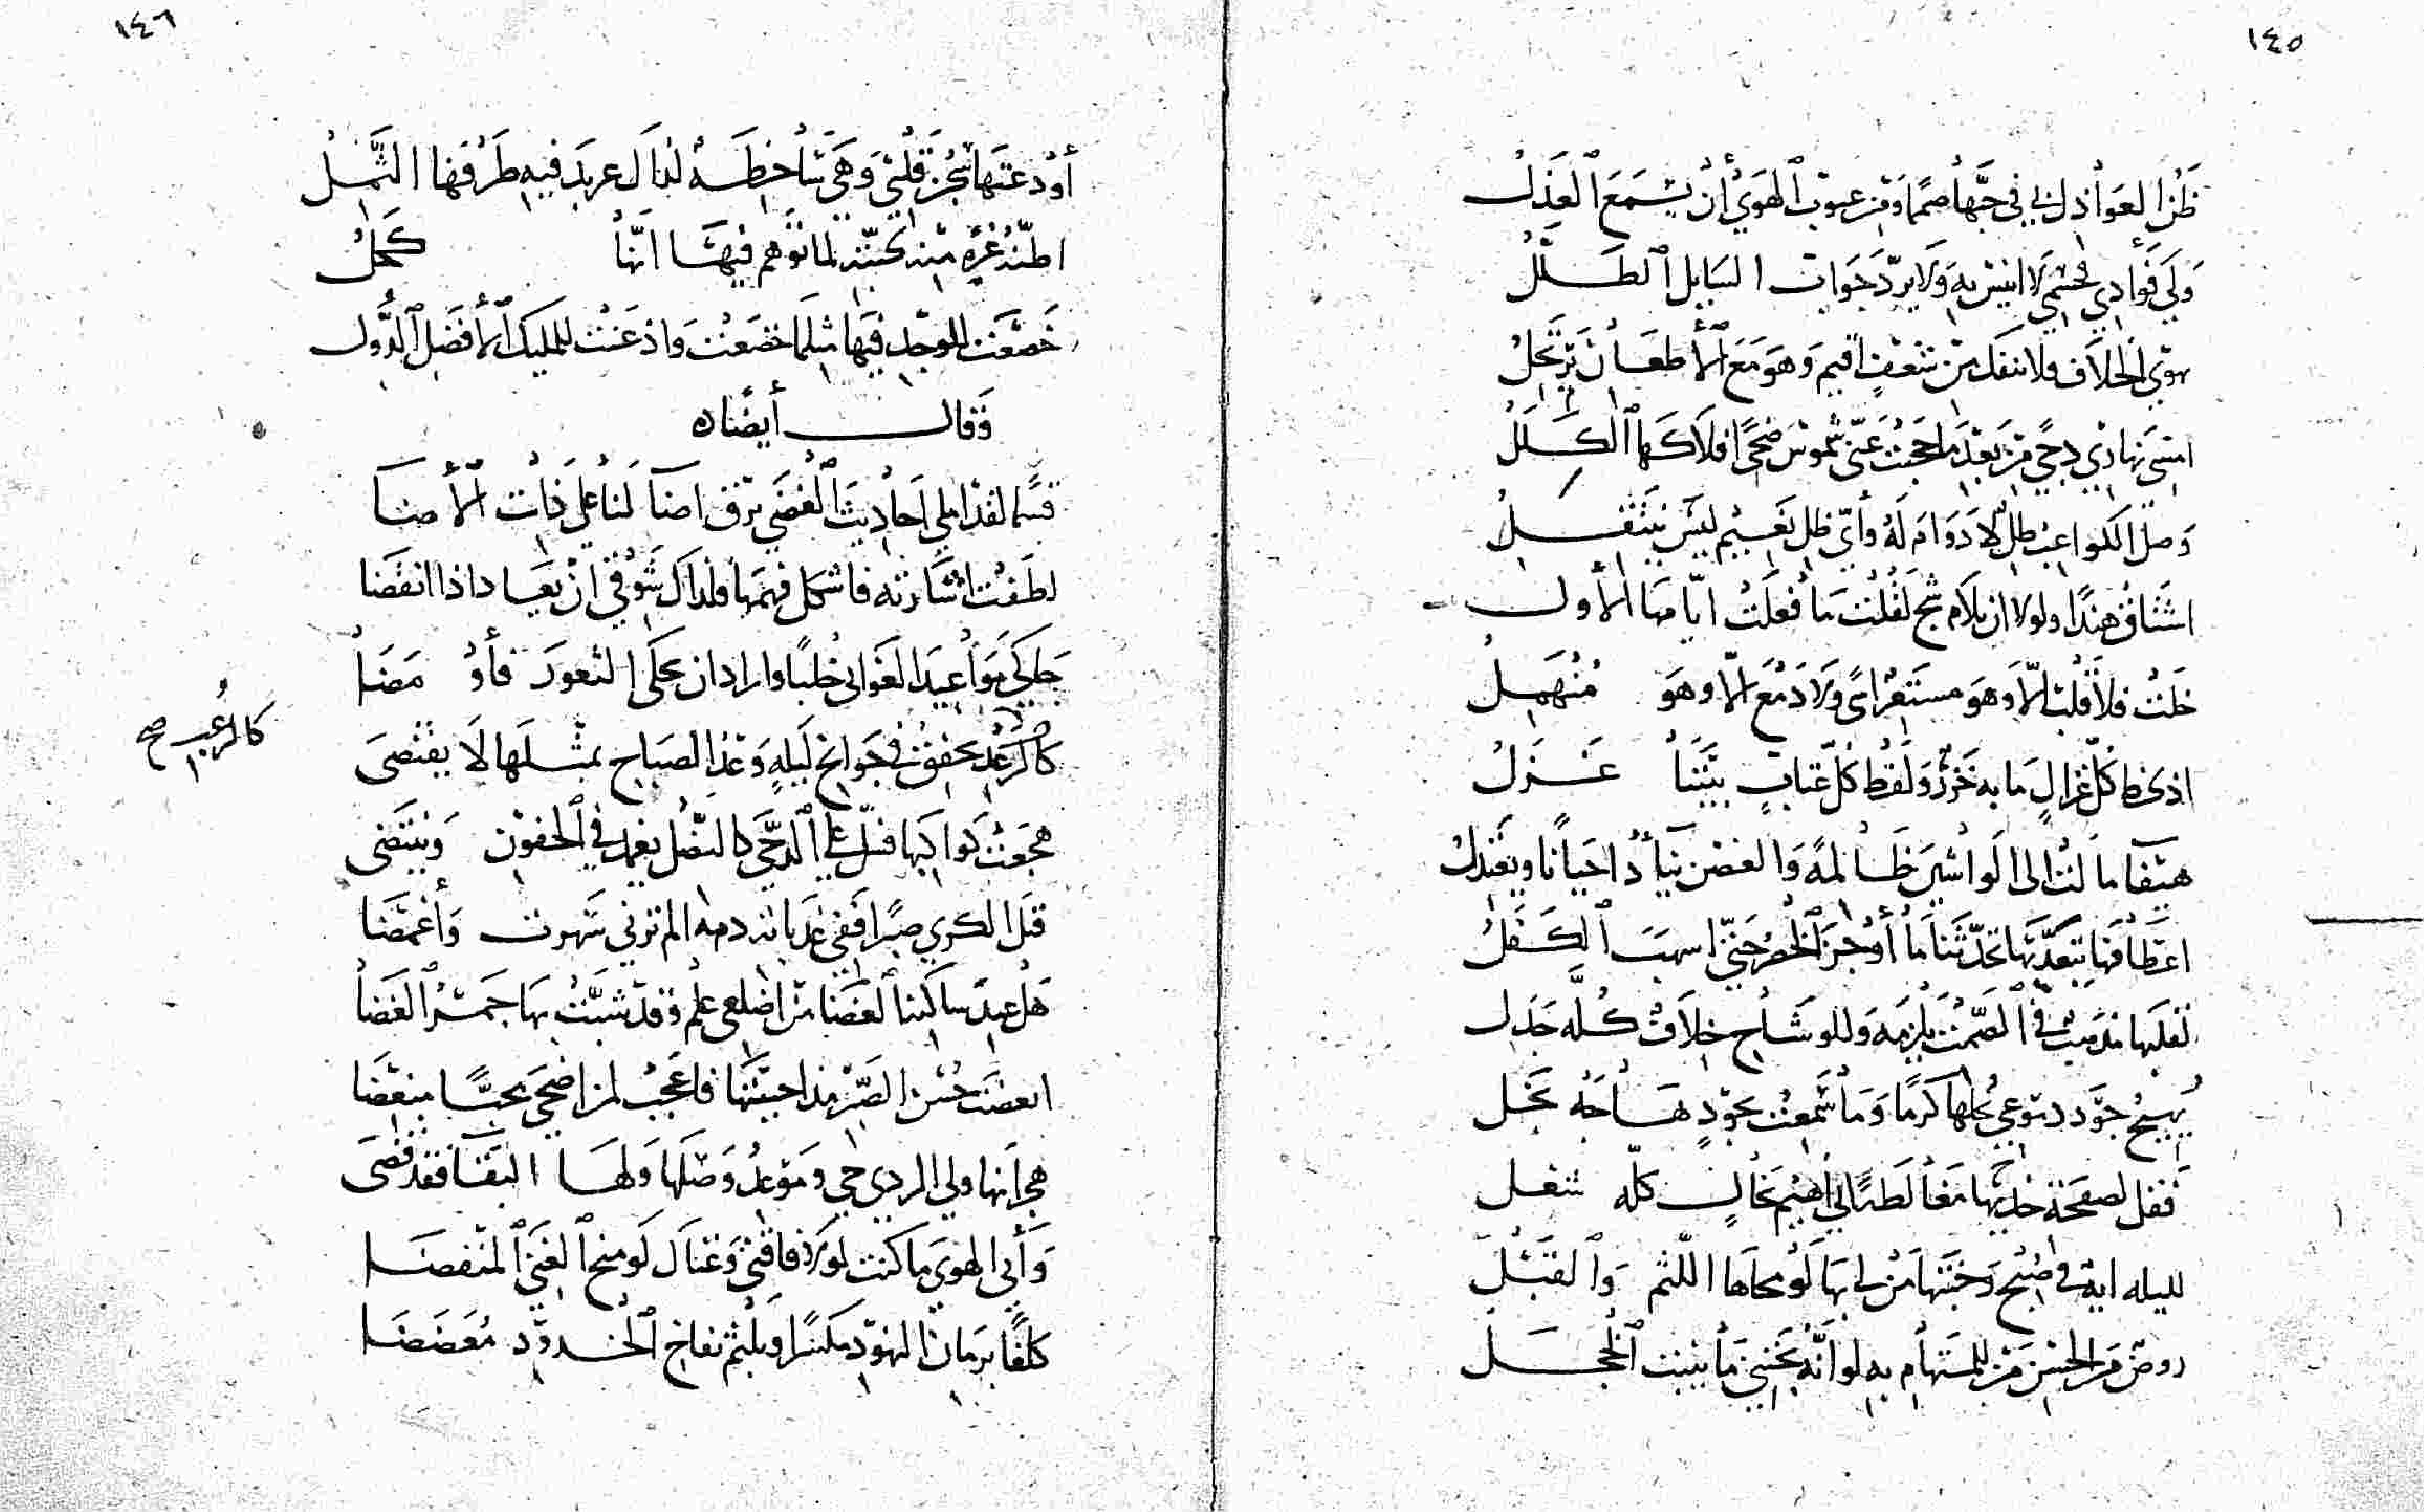 ١٤٥
ظن العواذل بي في حبها صمما ومن عيوب الهوى أن يسمع العذل
ولي فؤادي لا انيس به ولا يرد جوابات السايل الطلل
يهوى الخلاف فلا ننفك من شغف اقيم وهو مع الأطعان يرتحل
امسى نهاري دجى من بعد ما حجبت عني شموس ضحى افلاكها الكلل
وصل الكواعب ظل لا دوام له وأي ظل نعيم ليس ينتقل
اشتاق هندا ولولا ان يلام شج لقلت ما فعلت ايامنا الأول
خلت فلا قلب الا وهو مستعر اسى ولا دمع الا وهو منهمل
كل غزال ما به خزر ولفظ كل عتاب بيننا غزل
هيفا مالت الى الواشين ظالمة والغصن يناد احيانا ويعتدل
اعطافها تحدثنا ما أوجز الخصر حتى اسهب الكفل
لقلبها مذهب في الصمت يلزمه وللوشاح خلاف كله جدل
يهيج جود دموعي بخلها كرما وما سمعت بجود هاجه بخل
فقل لصفحة خديها مغالطا اهيم بخال كله شعل
لليله اية في صبح وجنتها من لي بها لو محاها اللثم والقبل
روض من الحسن من للمستهام به لو أنه يجتني ما ينبت الخجل
١٤٦
أودعتها قلبي وهي ساخطة لما ل عربد فيه طرفها الثمل
اظنه غره منه لما توهم فيها انها كحل
خضعت للوجد فيها مثلما خضعت واذعنت للمليك الأفضل الدول
وقال أيضا ه
قسما لقد املى احاديث الغضى برق اضا لنا على ذات الأضا
لطفت اشارته فاشكل فهمها فلذاك شوقي ان يعاد اذا انقضا
جلي كي مواعيد الغواني خلبا واراد ان يحكي الثغور فأومضا
كالرعد يخفق في جوانح ليله وعد الصباح بمثلها لا يقتضى
كالرعب صح
هجعت كواكبها فسل على الدجى كالنصل يغمد في الجفون وينتضى
قتل الكرى صبرا ففي دمه الم ترني سهرت وأغمضا
هل عند ساكنة الغضا من اضلعي علم وقد شبت بها جمر الغضا
ابغضت حسن الصبر مذ احببتها فاعجب لمن اضحى محبا مبغضا
هجرانها ولي الردي حي وموعد وصلها ولها البقا فقد قضى
وأبى الهوى ما كنت لولا فاقتي وغناك لو منح الغني المنفضا
كلفا برمان النهود مكسرا وبلثم تفاح الخدود معضضا